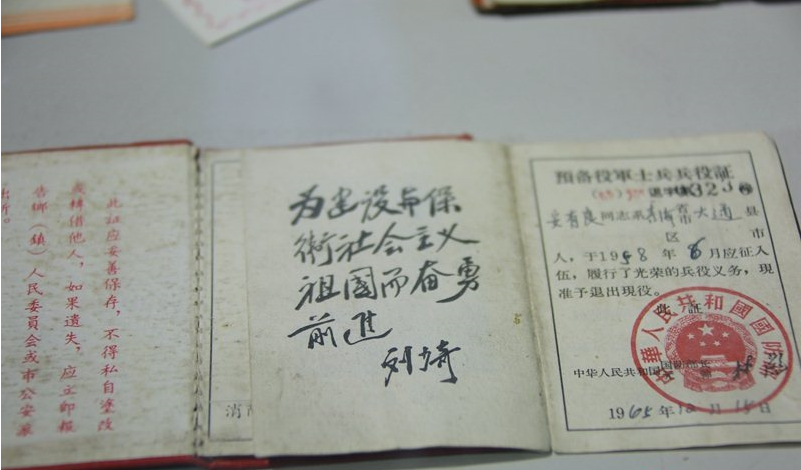 此証应妥善保存，不得私自塗改
或轉借他人，如果遺失，应立即報
告鄉（鎮）人民委員会或市公安派
出所。
为建设与保
衛社会主义
祖國而奋勇
前進
预备役軍士兵兵役証
字第323号
同志 大通 县
区 市
人，于1958年8月应征入
伍，履行了光荣的兵役义务，現
准予退出現役。
此証
中华人民共和国国
中華人民共和國國防部
1965年12月15日